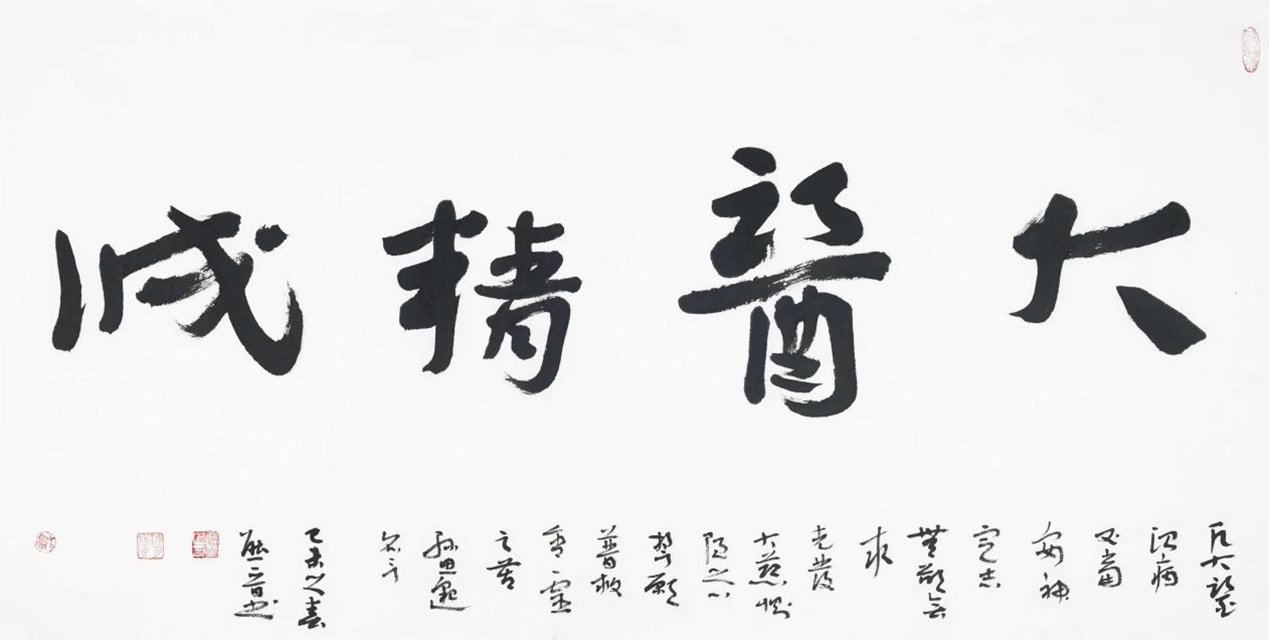 大醫精誠
凡大醫
治病
必當
安神
定志
無欲無
求
先發
大慈惻
隱之心
誓願
普救
含靈
之苦
孫思邈
名言
之春